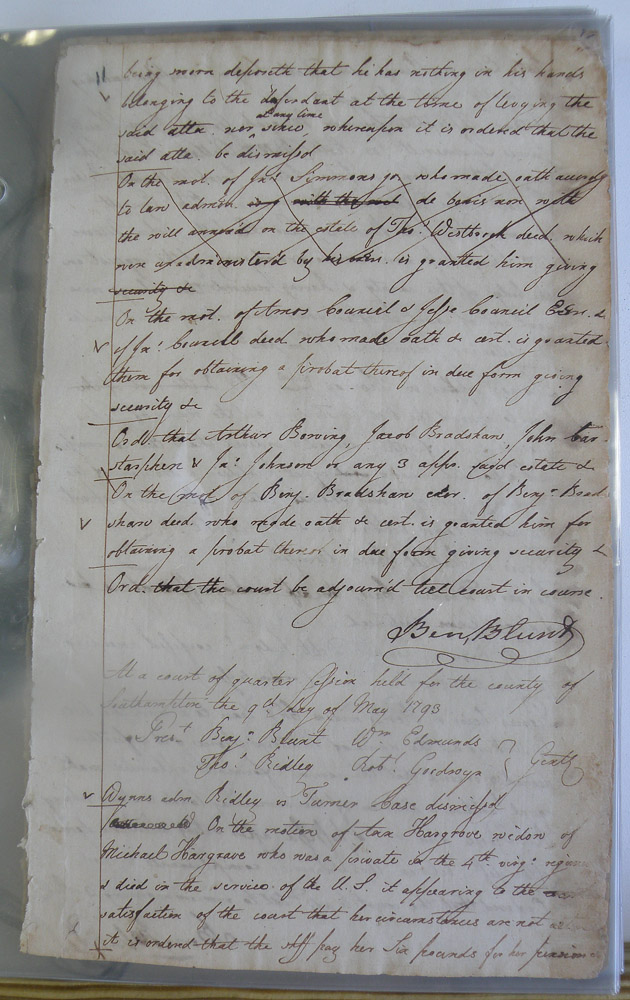 being sworn deposeth that he has nothing in his hands
belonging to the defendant at the time of levying the
said atta. nor at any time since, whereupon it is ordered that the
said atta. be dismissed
On the mot. of Jno. Simmons who made oath accordg
to law admon. with the de bonis non with
the will annexed on the estate of Thos. Westbrook deced. which
were unadministered by is granted him giving
security &c
On the mot. of Amos Council & Jesse Council Exrs. &
of Jno. Council deced. who made oath & cert. is granted
them for obtaining a probat thereof in due form giving
security &c
Ord. that Arthur Bowing, Jacob Bradshaw, John Car-
starphen & Jno. Johnson or any 3 appr. said estate &
On the mot of Benj. Bradshaw exor. of Benj. Brad
shaw deced. who made oath & cert. is granted him for
obtaining a probat thereof in due form giving security &
Ord. that the court be adjourn'd till court in course.
Ben Blunt
At a court of quarter Session held for the county of
Southampton the 9th day of May 1793
Prest. Benjn. Blunt Wm. Edmunds
Thos. Ridley Robt. Goodwyn Gentl
Wynns adm. Ridley vs Turner Case dismissed
On the motion of Hargrove widow of
Michael Hargrave who was a private in the 4th. virga. regim
& died in the service of the U.S. it appearing to the
satisfaction of the court that her circumstances are not
it is ordered that the shff pay her Six pounds for her pension